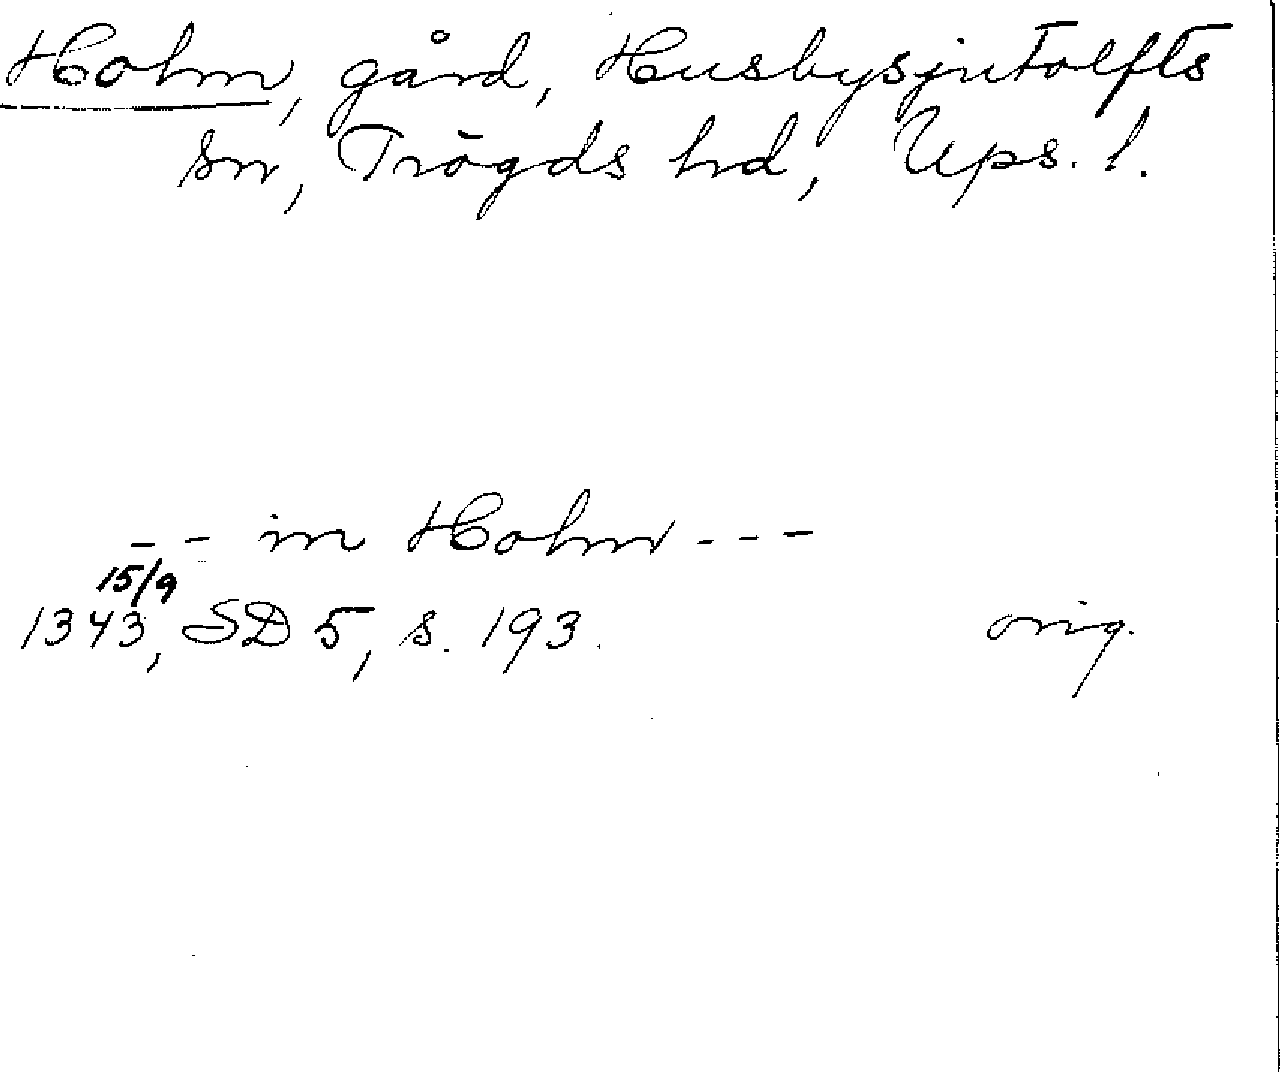 Holm, gård, Husbysjutolfts
sn, Trögds hd, Ups. l.
-- in Holm ---
15/9
1343, SD 5, s. 193. orig.